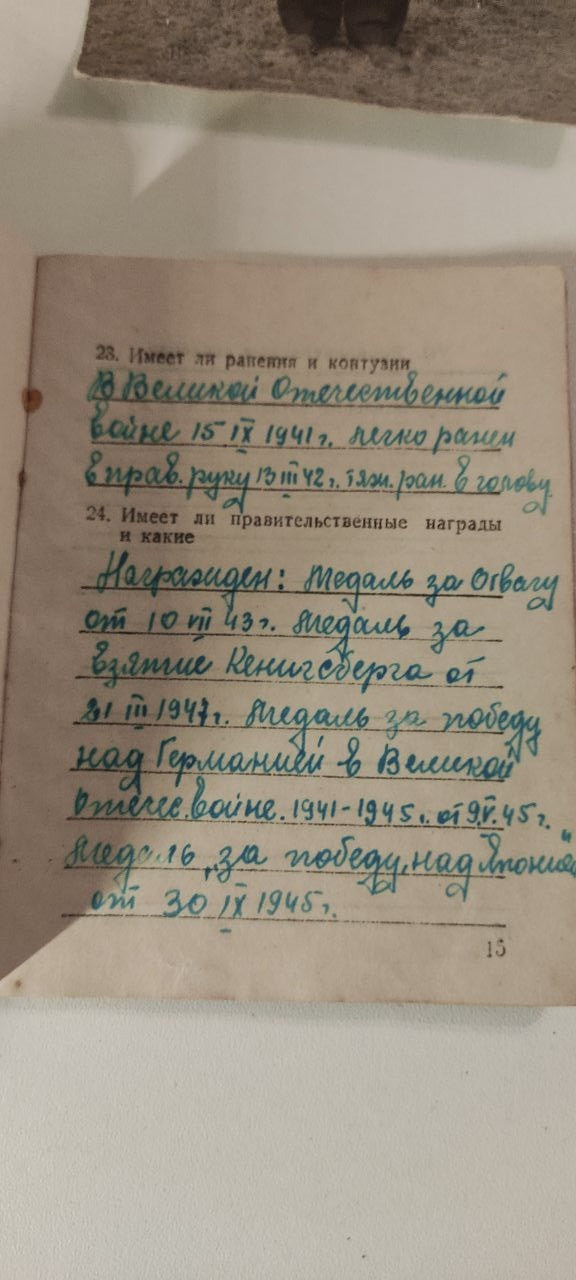 23. Имеет ли ранения и контузии
В Великой Отечественной
войне 15 IX 1941 г. легко ранен
в прав. руку 13 III 42 г. тяж. ран. в голову
24. Имеет ли правительственные награды
и какие
Награжден: Медаль за Отвагу
от 10 VII 43 г. Медаль за
взятие Кенигсберга от
31 III 1947 г. Медаль за победу
над Германией в Великой
Отечес. войне. 1941-1945 г. от 9.V.45 г.
Медаль „за победу над Японией"
от 30 IX 1945 г.
15